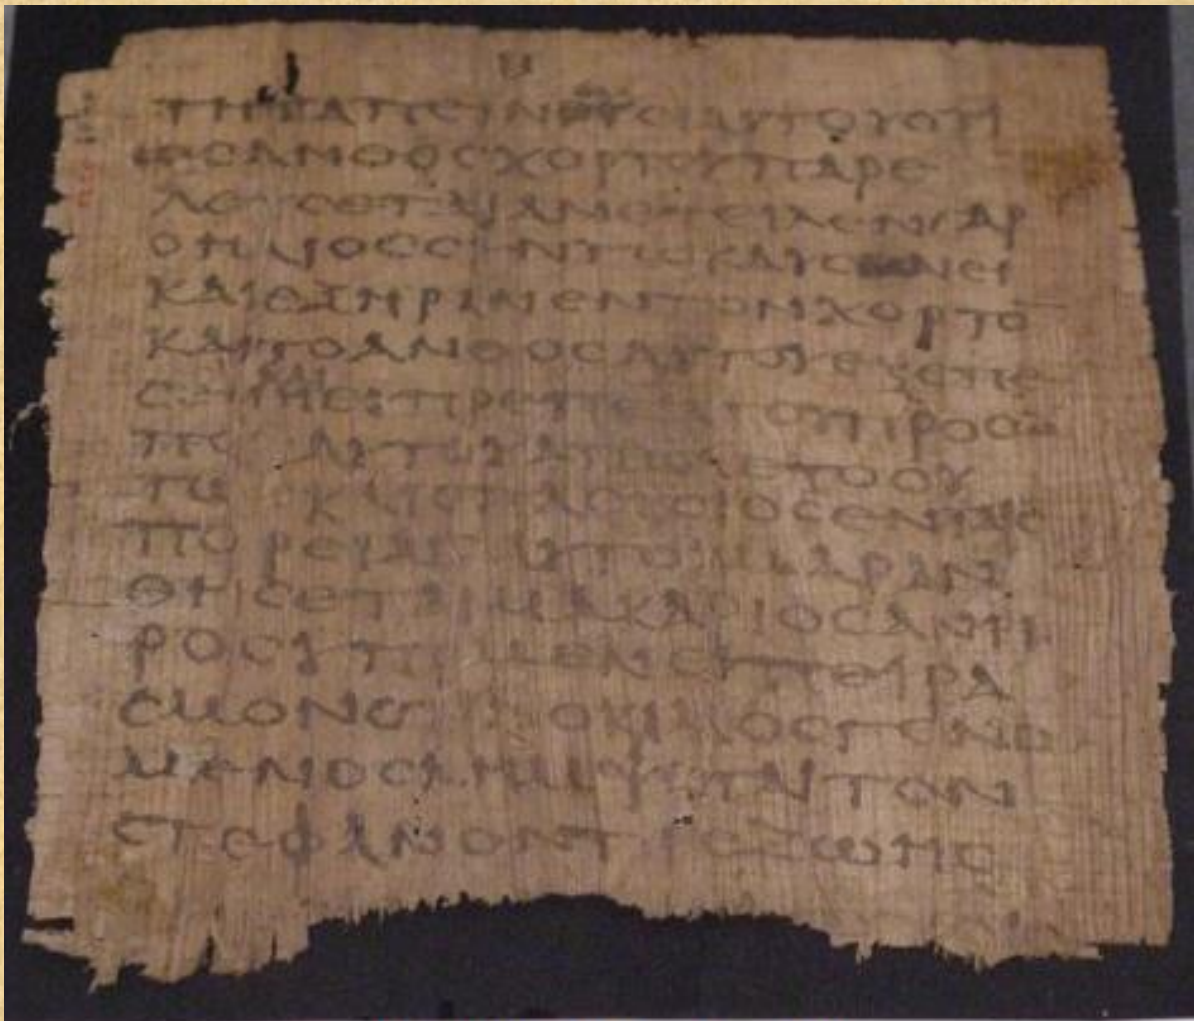 ΤΗΤΑΠΕΙΝΩCΙΑΥΤΟΥΟΤΙ
ΩCΑΝΘΟCΧΟΡΤΟΥΠΑΡΕ
ΛΕΥCΕΤΑΙΑΝΕΤΕΙΛΕΝΓΑΡ
ΟΗΛΙΟCCΥΝΤΩΚΑΥCΩΝΕΙ
ΚΑΙΕΞΗΡΑΝΕΝΤΟΝΧΟΡΤΟ̅
ΚΑΙΤΟΑΝΘΟCΑΥΤΟΥΕΞΕΠΕ
ΕΥΠΡΕΠΕΙΑΤΟΥΠΡΟCΩ
ΑΥΤΟΥΑΠΩΛΕΤΟΟΥ
ΚΑΙΟΠΛΟΥCΙΟCΕΝΤΑΙC
ΠΟΡΕΙΑΙCΑΥΤΟΥΜΑΡΑΝ
ΘΗCΕΤΑΙΜΑΚΑΡΙΟCΑΝΗ
ΡΟCΥΠΟΜΕΝΕΙΠΕΙΡΑ
CΜΟΝΟ ΔΟΚΙΜΟCΓΕΝΟ
ΜΕΝΟCΛΗΜΨΕΤΑΙΤΟΝ
CΤΕΦΑΝΟΝΤΗCΖΩΗC